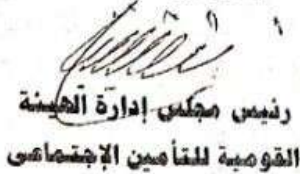 رئيس مجلس إدارة الهيئة
القومية للتأمين الإجتماعى